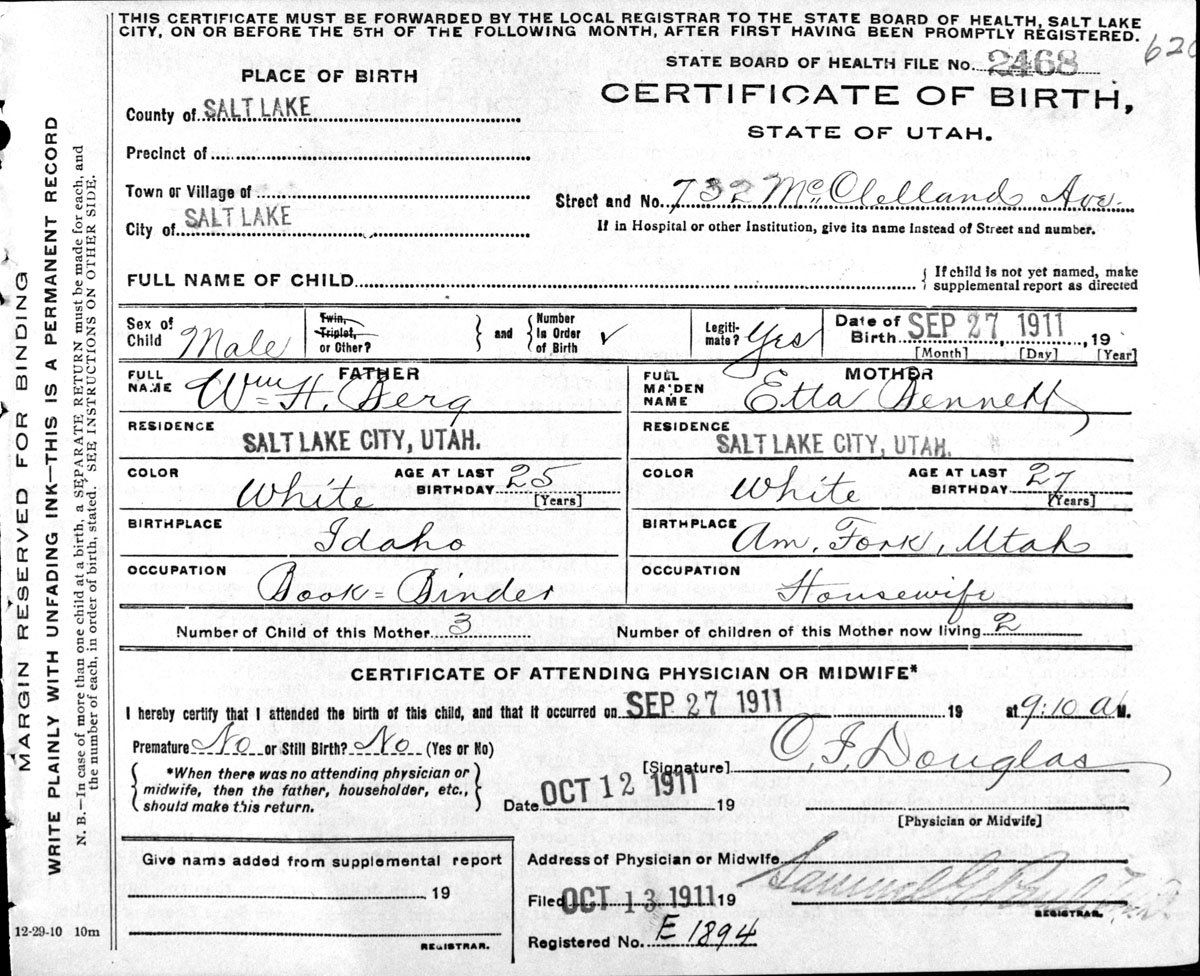 THIS CERTIFICATE MUST BE FORWARDED BY THE LOCAL REGISTRAR TO THE STATE BOARD OF HEALTH, SALT LAKE
CITY, ON OR BEFORE THE 5TH OF THE FOLLOWING MONTH, AFTER FIRST HAVING BEEN PROMPTLY REGISTERED.
STATE BOARD OF HEALTH FILE No. 2468
PLACE OF BIRTH
CERTIFICATE OF BIRTH,
STATE OF UTAH.
County of SALT LAKE
Precinct of
Town or Village of
City of SALT LAKE
Street and No. 732 McClelland Ave.
If in Hospital or other Institution, give its name instead of Street and number.
FULL NAME OF CHILD
If child is not yet named, make
supplemental report as directed
Sex of Child Male
Twin,
Triplet,
or Other?
and
Number
In Order
of Birth ✓
Legiti-
mate? Yes
Date of
Birth SEP 27 1911, 19
[Month] [Day] [Year]
FATHER
FULL NAME Wm H. Berg
RESIDENCE
SALT LAKE CITY, UTAH.
COLOR White
AGE AT LAST BIRTHDAY 25
[Years]
BIRTHPLACE
Idaho
OCCUPATION
Book=Binder
MOTHER
FULL MAIDEN NAME Etta Bennett
RESIDENCE
SALT LAKE CITY, UTAH.
COLOR White
AGE AT LAST BIRTHDAY 27
[Years]
BIRTHPLACE
Am. Fork, Utah
OCCUPATION
Housewife
Number of Child of this Mother 3 Number of children of this Mother now living 2
CERTIFICATE OF ATTENDING PHYSICIAN OR MIDWIFE*
I hereby certify that I attended the birth of this child, and that it occurred on SEP 27 1911 19 at 9:10 a M.
Premature No or Still Birth? No (Yes or No)
*When there was no attending physician or
midwife, then the father, householder, etc.,
should make this return.
[Signature] O. J. Douglas
Date OCT 12 1911 19
[Physician or Midwife]
Give name added from supplemental report
19
REGISTRAR.
Address of Physician or Midwife
Filed OCT 13 1911 19 Samuel G. Paul
REGISTRAR.
Registered No. E 1894
12-29-10 10m
MARGIN RESERVED FOR BINDING
WRITE PLAINLY WITH UNFADING INK—THIS IS A PERMANENT RECORD
N. B.—In case of more than one child at a birth, a SEPARATE RETURN must be made for each, and
the number of each, in order of birth, stated. SEE INSTRUCTIONS ON OTHER SIDE.